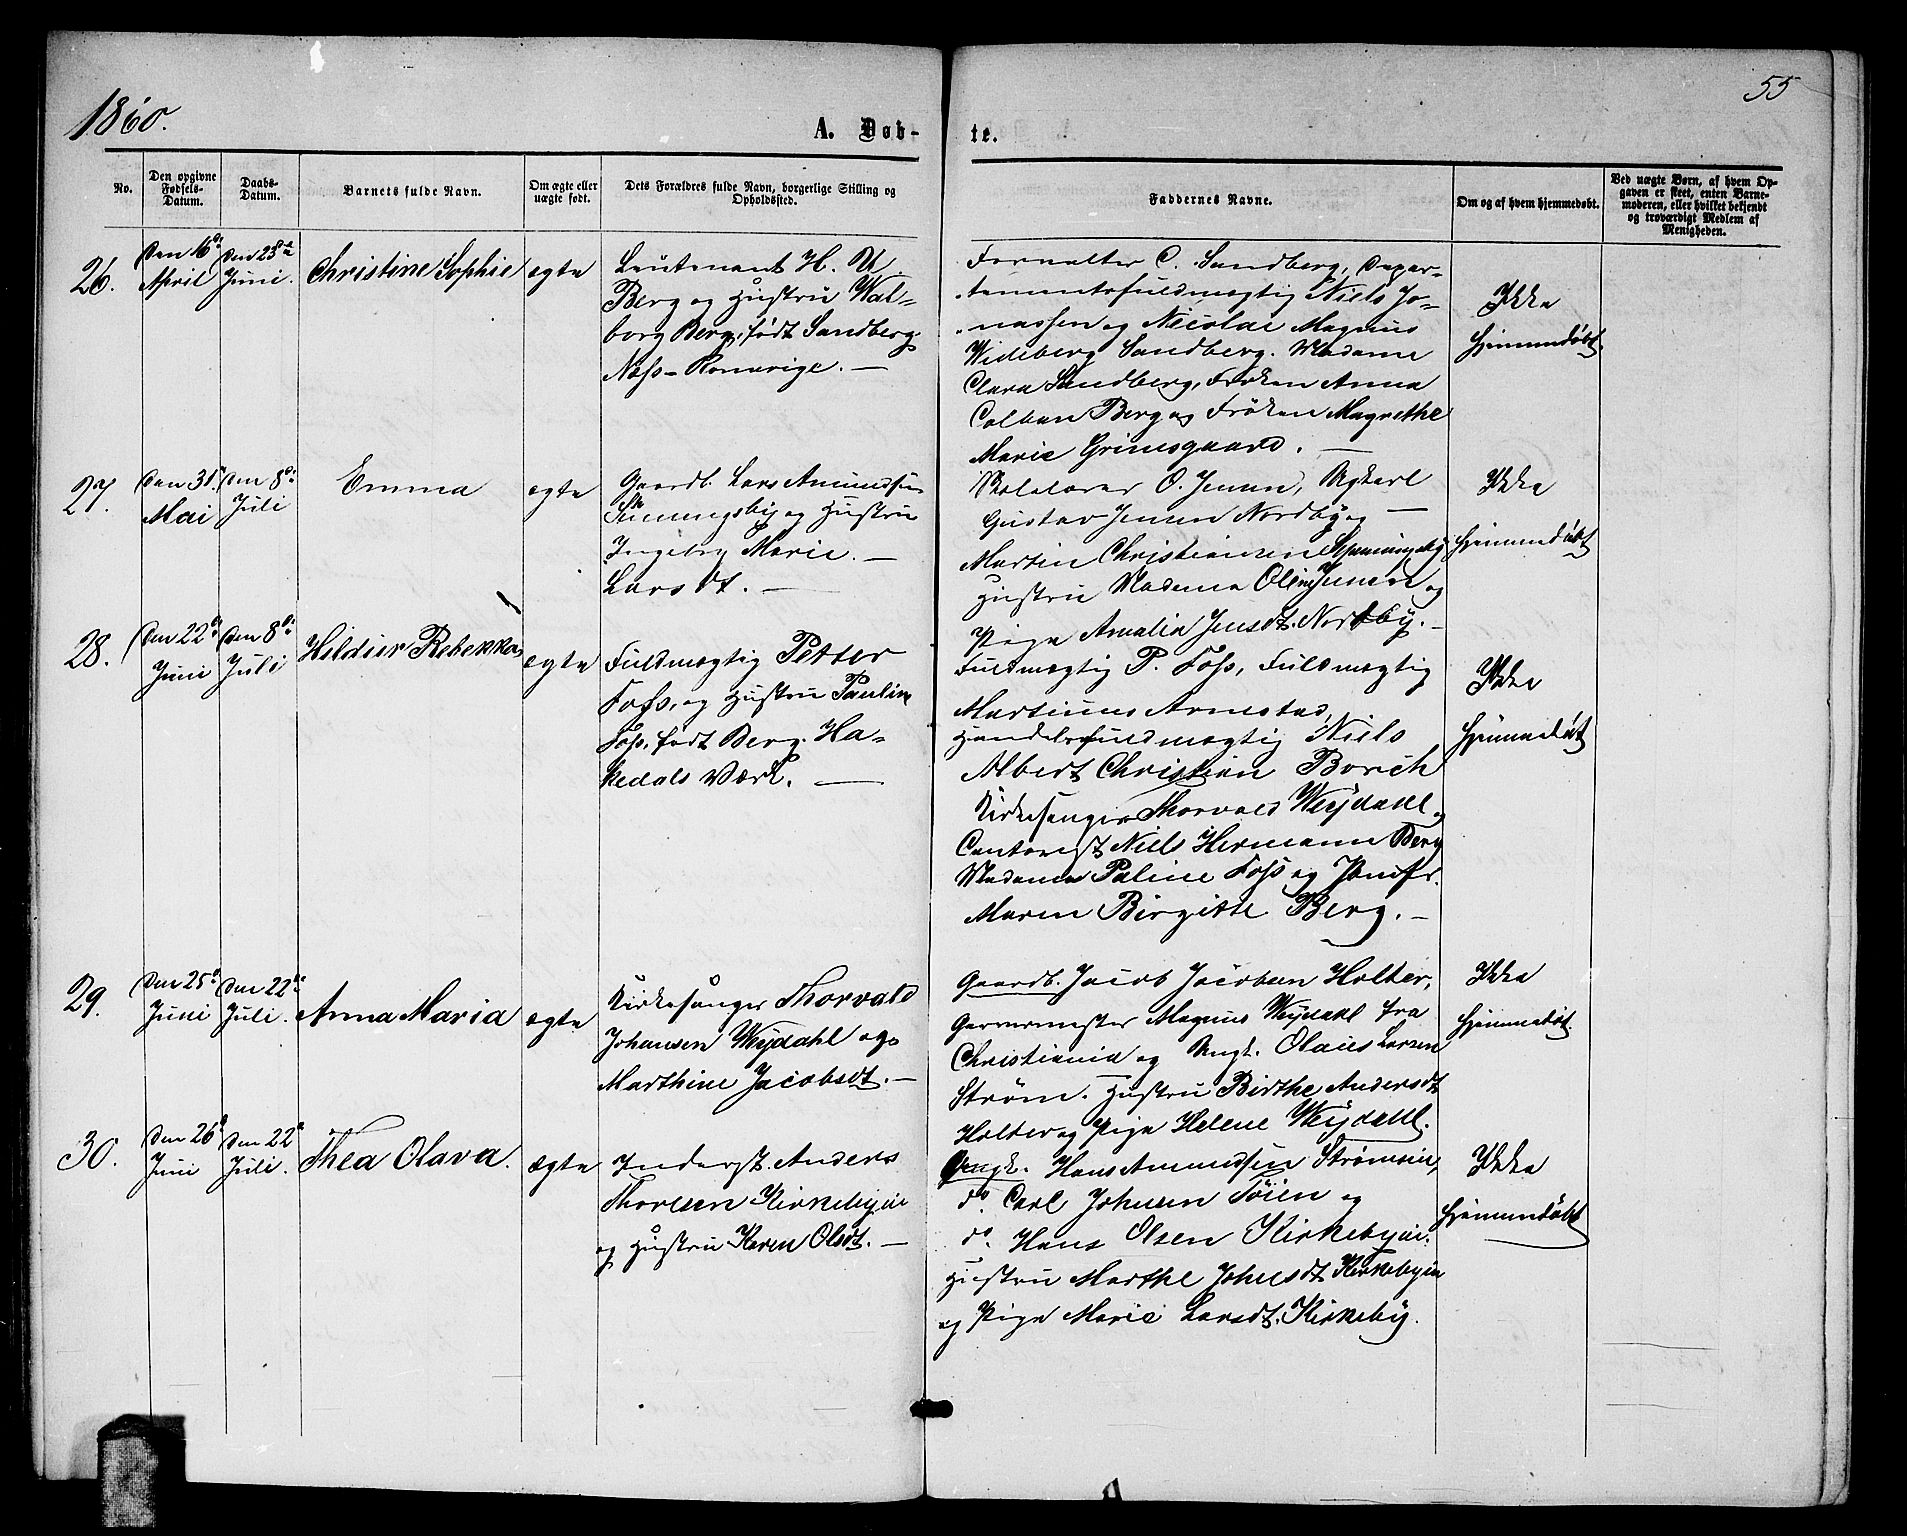 1860.
55
A. Døb-
te.
No.
Den opgivne Fødsels-Datum.
Daabs-Datum.
Barnets fulde Navn.
Om ægte eller uægte født.
Dets Forældres fulde Navn, borgerlige Stilling og Opholdssted.
Faddernes Navne.
Om og af hvem hjemmedøbt.
Ved uægte Børn, af hvem Op-
gaven er skeet, enten Barne-
moderen, eller hvilket bekjendt
og troværdigt Medlem af
Menigheden.
26.
Den 16de
April
Den 23de
Juni.
Christine Sophie
ægte
Leutenant H. U.
Berg og Hustru Wal-
borg Berg, født Sandberg
Næss-Romerige. —
Forvalter C. Sandberg, Depar-
tementsfuldmægtig Niels Jo-
nassen og Nicolai Magnus
Wideberg Sandberg. Madame
Clara Sandberg, Frøken Anna
Colban Berg og Frøken Magrethe
Marie Grimsgaard. —
Ikke
hjemmedøbt.
27.
Den 31
Mai
Den 8de
Juli
Emma
ægte
Gaardb. Lars Amundsen
og Hustru
Ingeborg Marie. —
Larsdt. —
Skolelærer O. Jensen, Ungkarl
Gustav Jensen Nordby og —
Martin Christiansen
Hustru Madame Oline Jensen og
Pige Amalia Jensdt. Nordby. —
Ikke
hjemmedøbt
28.
Den 22de
Juni
Den 8de
Juli
Rebekka
ægte
Fuldmægtig Petter
Foss, og Hustru Pauline
Foss, født Berg. Ha-
kedals Værk. —
Fuldmægtig P. Foss, Fuldmægtig
Martinus Arnestad,
Handelsfuldmægtig Niels
Albert Christian Borch
Kirkesanger Thorvald Weydahl og
Contorist Niels Hermann Berg
Madame Paline Foss og Jomfr.
Maren Birgitte Berg. —
Ikke
hjemmedøbt
29.
Den 25de
Juni
Den 22de
Juli.
Anna Maria
ægte
Kirkesanger Thorvald
Johansen Weydahl og
Marthine Jacobsdt. —
Gaardb. Jacob Jacobsen Holter,
Garvermester Magnus Weydahl fra
Christiania og Ungk. Olaus Larsen
Strøm. Hustru Birthe Andersdt
Holter og Pige Helene Weydahl.
Ikke
hjemmedøbt.
30.
Den 26de
Juni
Den 22de
Juli.
Thea Olava.
ægte
Inderst. Anders
Thoresen Kirkebyeie
og Hustru Karen Olsdt. —
Ungk. Hans Amundsen Strømseie,
do. Carl Johnsen Tøien og
do. Hans Olsen Kirkebyeie.
Hustru Marthe Johnsdt. Kirkebyeie
og Pige Marie Larsdt. Kirkeby.
Ikke
hjemmedøbt